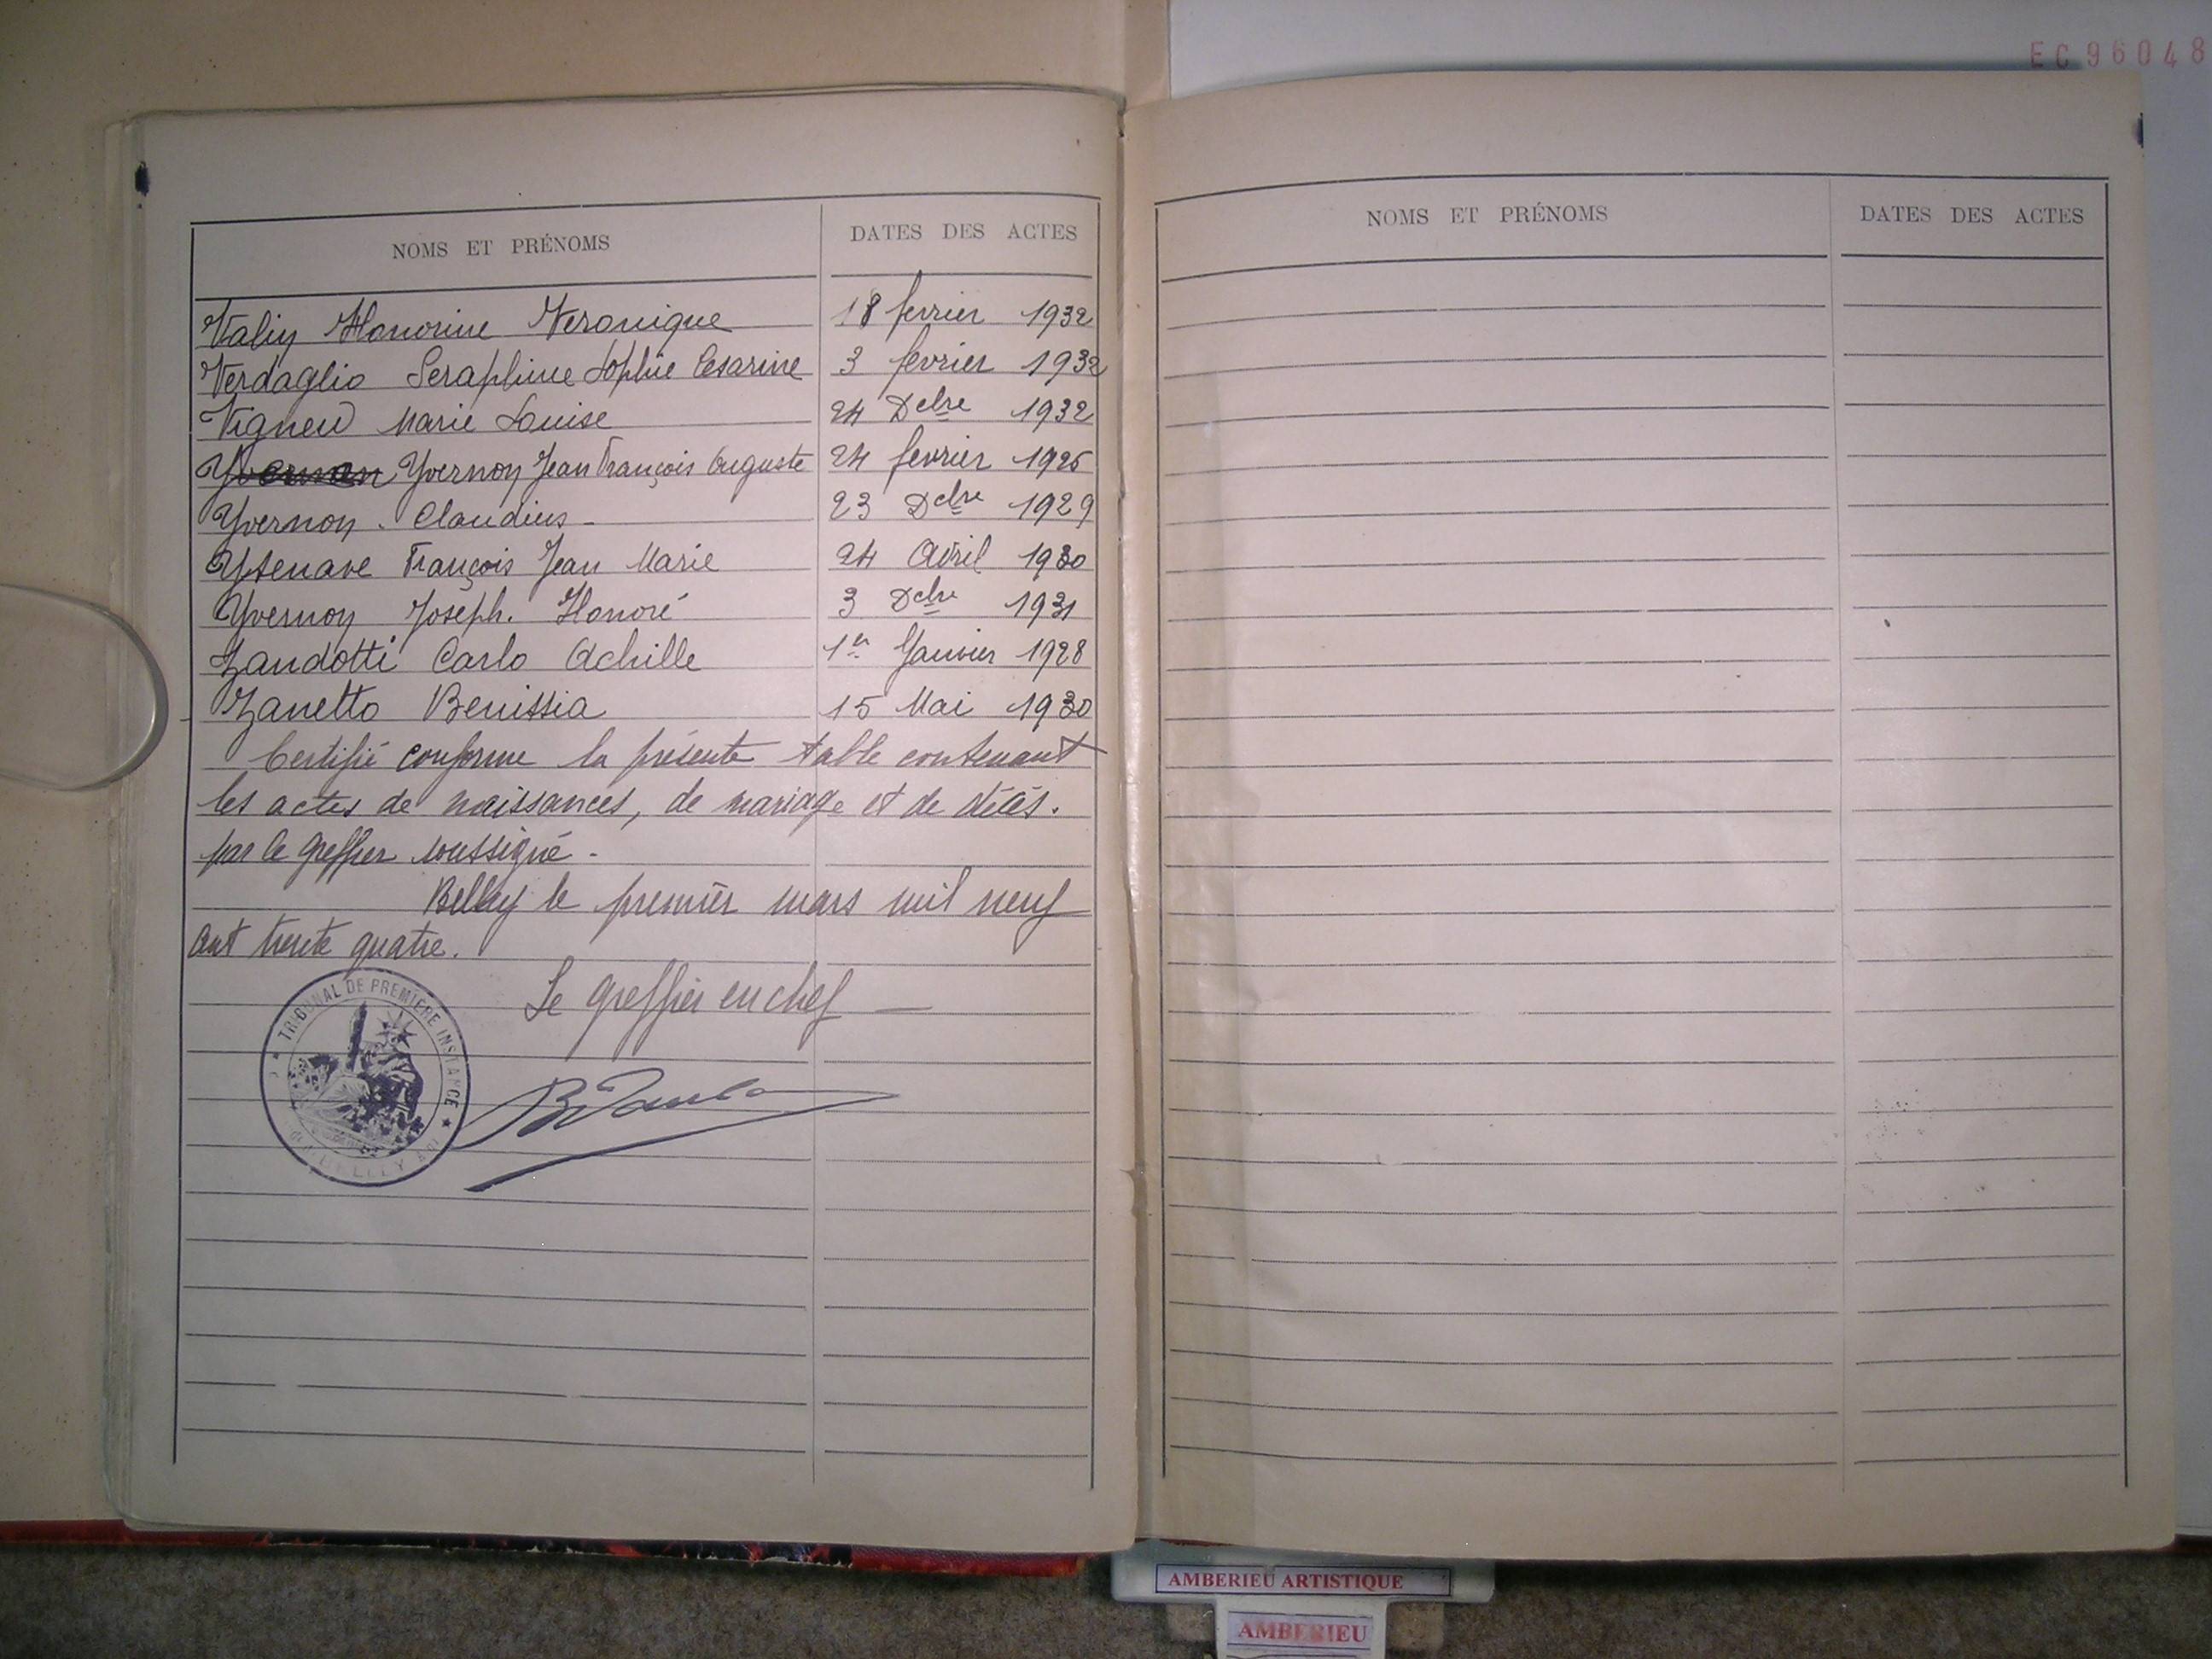 EC96048
NOMS ET PRÉNOMS DATES DES ACTES
Valin Honorine Veronique 18 fevrier 1932
Verdaglio Seraphine Sophie Cesarine 3 fevrier 1932
Vigneu Marie Louise 24 Dcbre 1932
Yvernon Jean François Auguste 24 fevrier 1925
Yvernon. Claudius - 23 Dcbre 1929
Ysenave François Jean Marie 24 Avril 1930
Yvernon Joseph. Honoré 3 Dcbre 1931
Zandotti Carlo Achille 1er Janvier 1928
Zanetto Benissia 15 Mai 1930
Certifié conforme la présente table contenant
les actes de naissances, de mariage et de décès.
par le greffier soussigné -
Belley le premier mars mil neuf
cent trente quatre.
Le greffier en chef —
TRIBUNAL DE PREMIERE INSTANCE
BELLEY
NOMS ET PRÉNOMS DATES DES ACTES
AMBERIEU ARTISTIQUE
AMBERIEU